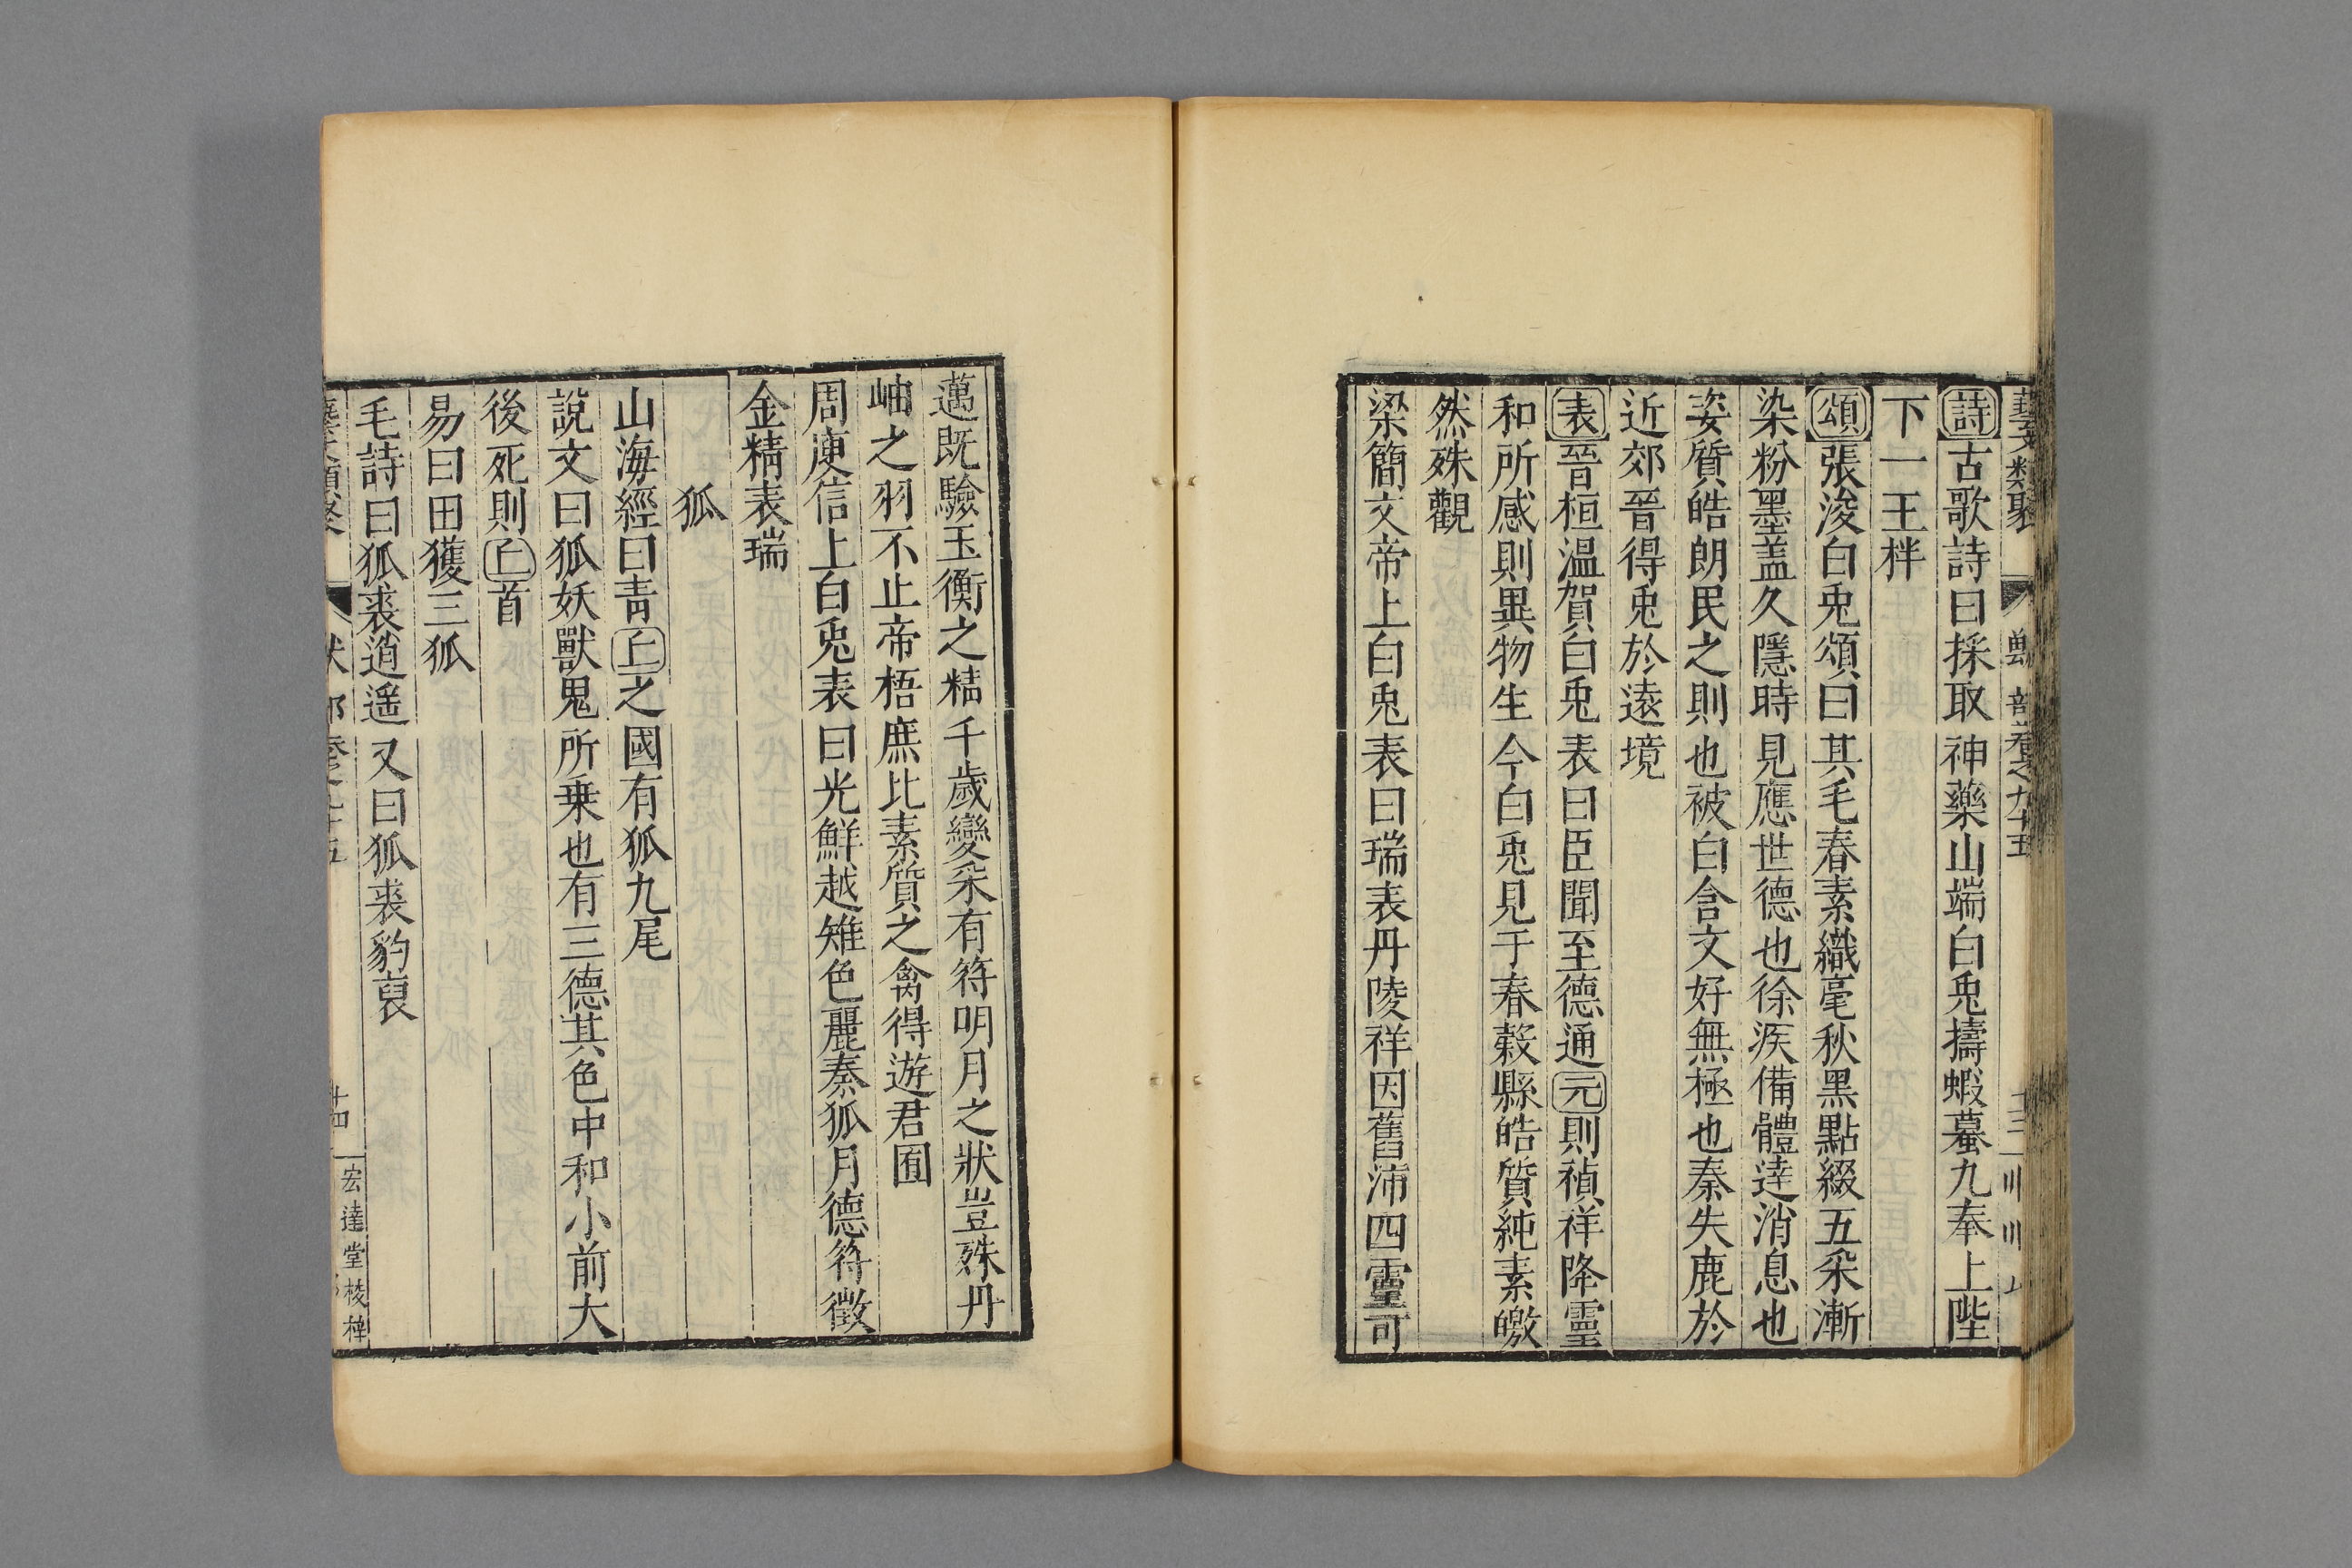 藝文類聚 獸部卷之九十五 十三
詩古歌詩曰採取神藥山端白兎擣蝦蟇九奉上陛
下一王柈
頌張浚白兎頌曰其毛春素織毫秋黑點綴五采漸
染粉墨盖久隱時見應世德也徐疾備體達消息也
姿質皓朗民之則也被白含文好無極也秦失鹿於
近郊晉得兎於遠境
表晉桓温賀白兎表曰臣聞至德通元則禎祥降靈
和所感則異物生今白兎見于春穀縣皓質純素皦
然殊觀
梁簡文帝上白兎表曰瑞表丹陵祥因舊沛四靈可
邁既驗玉衡之精千歲變采有符明月之狀豈殊丹
岫之羽不止帝梧庶比素質之禽得遊君囿
周庾信上白兎表曰光鮮越雉色麗秦狐月德符徵
金精表瑞
狐
山海經曰青丘之國有狐九尾
說文曰狐妖獸鬼所乗也有三德其色中和小前大
後死則丘首
易曰田獲三狐
毛詩曰狐裘逍遥又曰狐裘豹褎
藝文類聚 獸部卷之九十五 十四 宏達堂棱梓